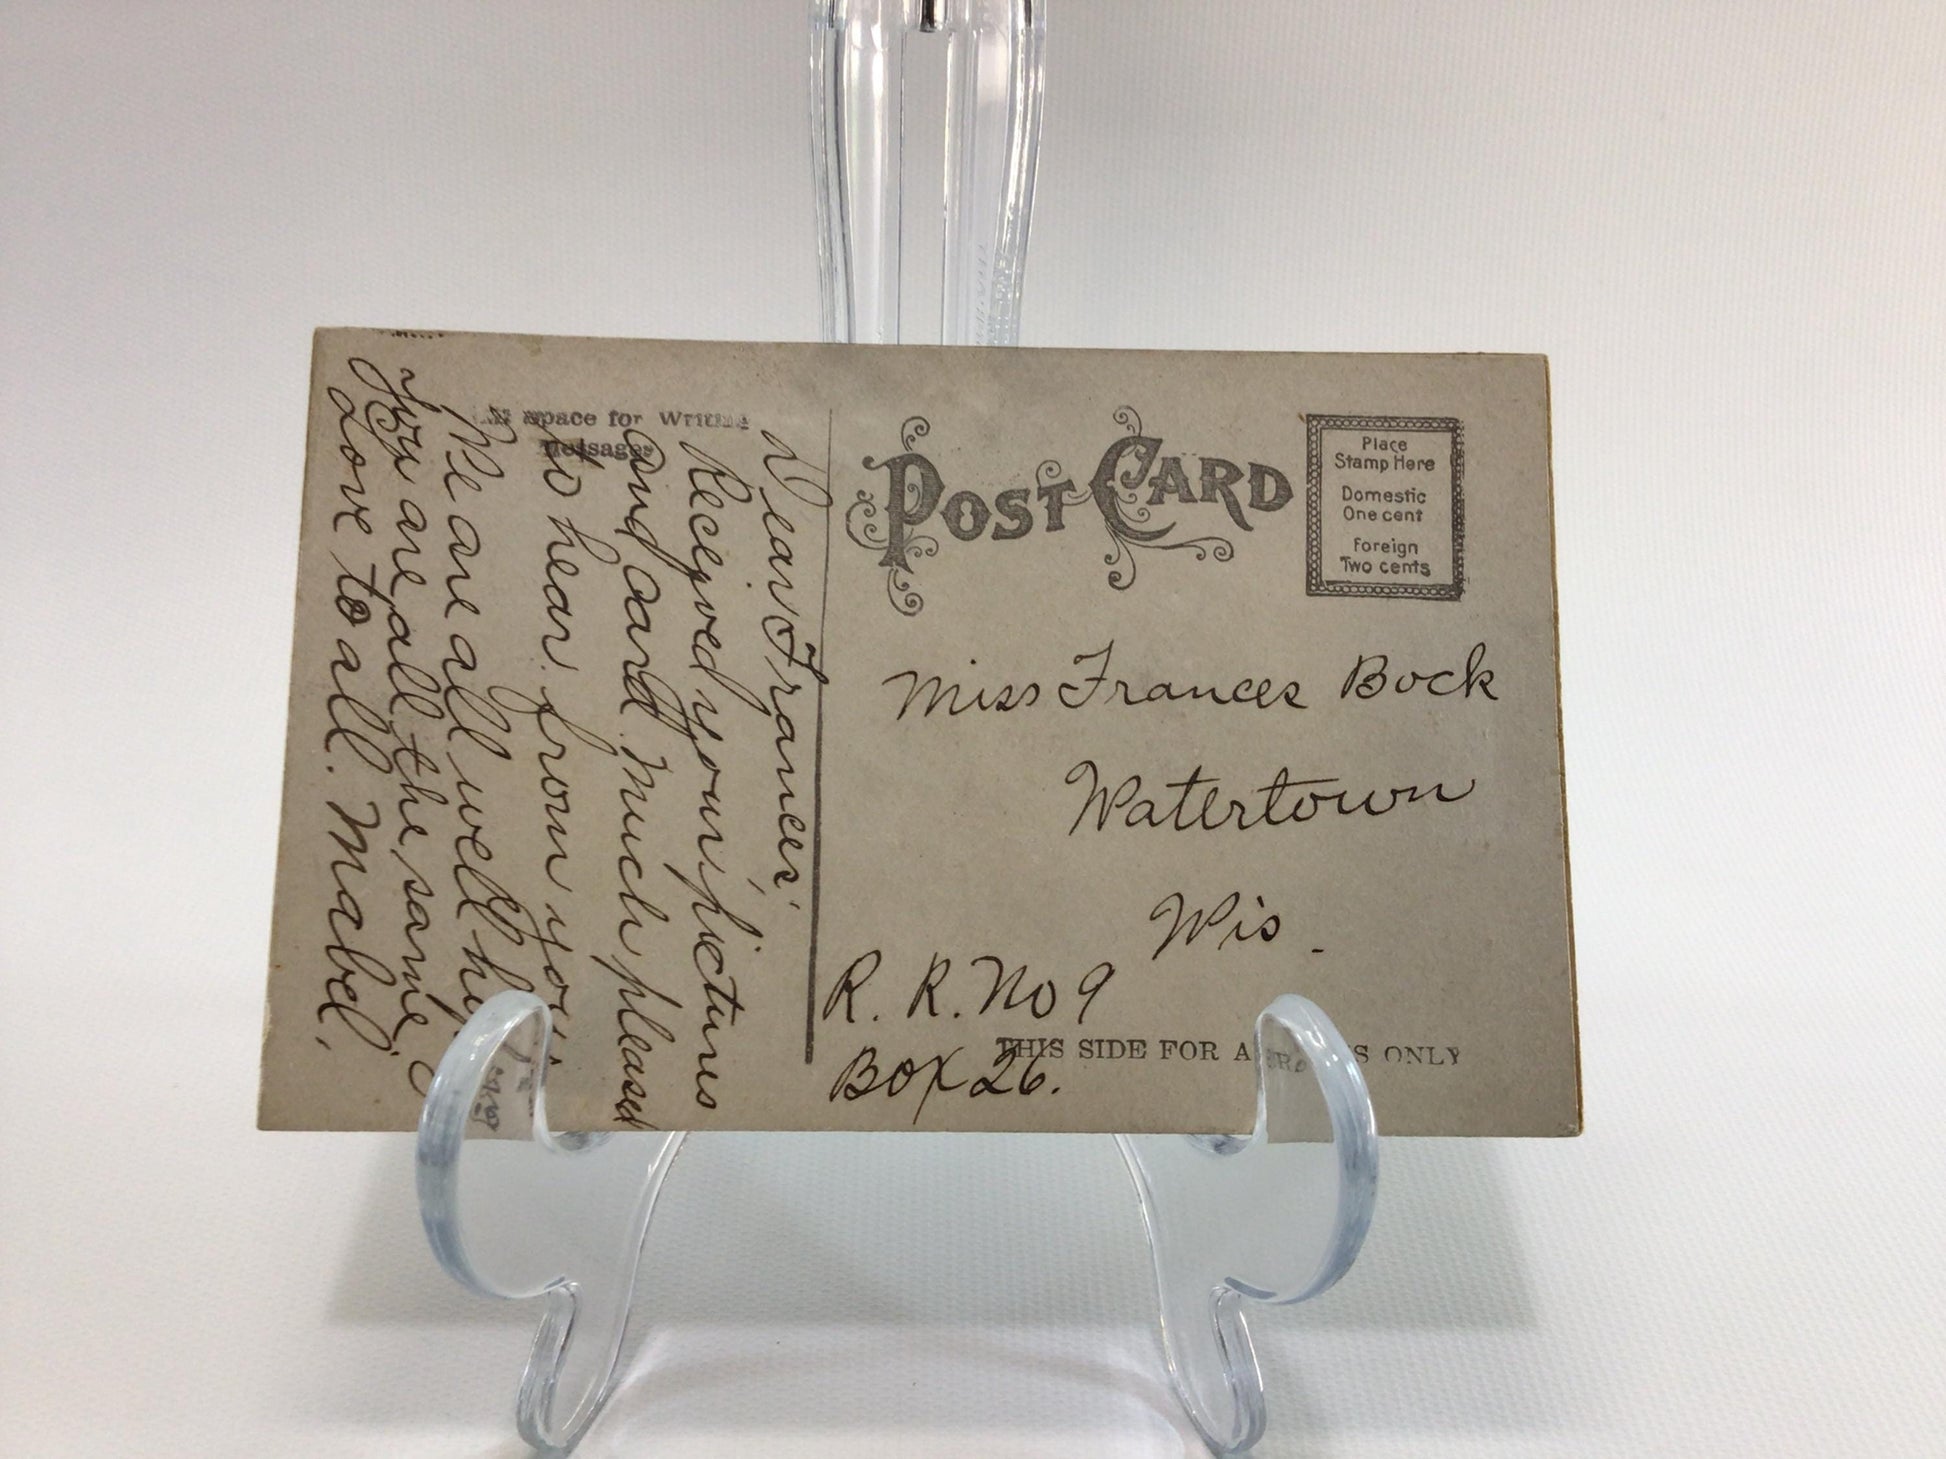 Space for Writing
Messages
Dear Frances:
Received your pictures
and card. Much pleased
to hear from you.
We are all well
you are all the same.
Love to all. Mabel.
POST CARD
Place
Stamp Here
Domestic
One cent
Foreign
Two cents
Miss Frances Bock
Watertown
Wis.
R. R. No 9
Box 26.
THIS SIDE FOR ADDRESS ONLY